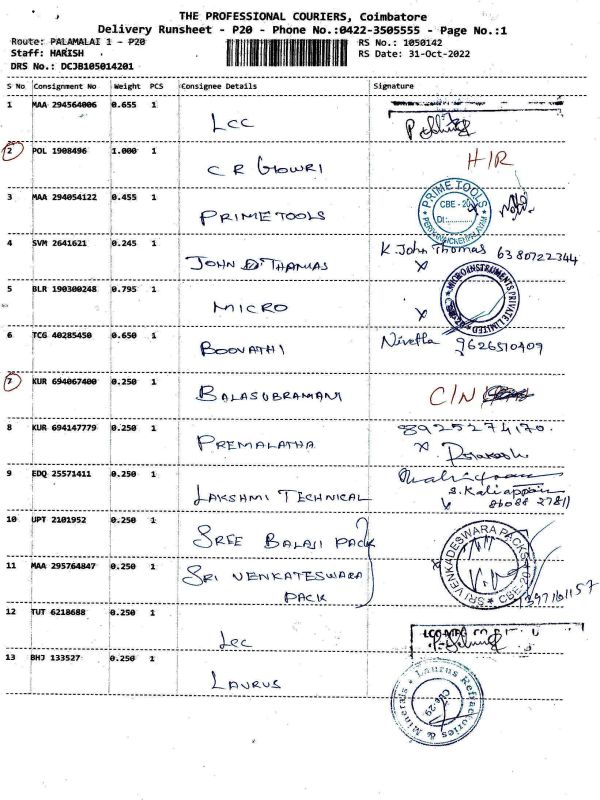 THE PROFESSIONAL COURIERS, Coimbatore
Delivery Runsheet - P20 - Phone No.:0422-3505555 - Page No.:1
Route: PALAMALAI 1 - P20 RS No.: 1050142
Staff: HARISH RS Date: 31-Oct-2022
DRS No.: DCJB105014201
S No Consignment No Weight PCS Consignee Details Signature
1 MAA 294564006 0.655 1 LCC
2 POL 1908496 1.000 1 C R GOWRI H/R
3 MAA 294054122 0.455 1 PRIMETOOLS PRIME TOOLS CBE - 20
4 SVM 2641621 0.245 1 JOHN THAMAS K. John Thomas 6380722344
5 BLR 190300248 0.795 1 MICRO MICRO INSTRUMENTS PRIVATE LIMITED
6 TCG 40285450 0.650 1 BOOVATHI 9626510409
7 KUR 694067400 0.250 1 BALASUBRAMANI C/N
8 KUR 694147779 0.250 1 PREMALATHA 8925274170.
9 EDQ 25571411 0.250 1 LAKSHMI TECHNICAL S. Kaliappan
10 UPT 2101952 0.250 1 SREE BALAJI PACK
11 MAA 295764847 0.250 1 SRI VENKATESWARA PACK SRI VENKADESWARA PACKS CBE-20
12 TUT 6218688 0.250 1 Lcc
13 BHJ 133527 0.250 1 LAURUS Laurus Refractories & Minerals CBE-29